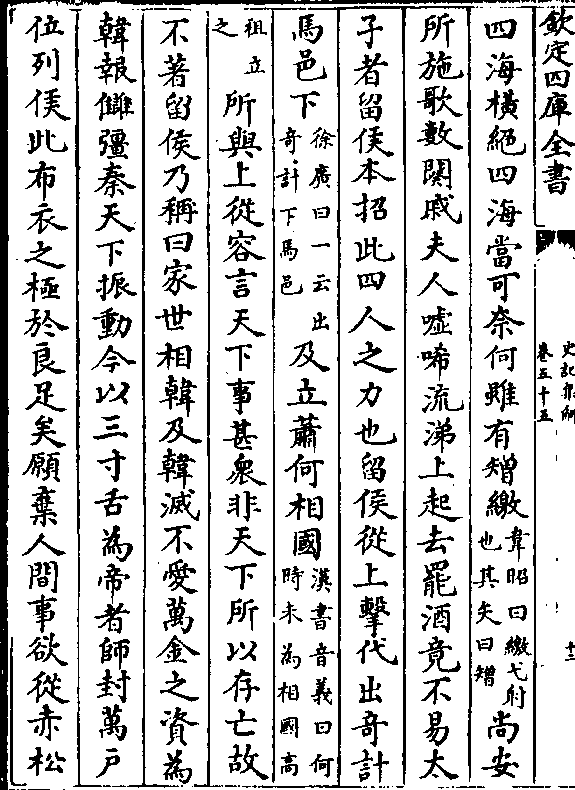 欽定四庫全書
史記集解
卷五十五
十二
四海橫絕四海當可奈何雖有矰繳韋昭曰繳弋射也其矢曰矰尚安
所施歌數闋戚夫人噓唏流涕上起去罷酒竟不易太
子者留侯本招此四人之力也留侯從上擊代出奇計
馬邑下徐廣曰一云出奇計下馬邑及立蕭何相國漢書音義曰何時未為相國高
祖立之所與上從容言天下事甚衆非天下所以存亡故
不著留侯乃稱曰家世相韓及韓滅不愛萬金之資為
韓報讎彊秦天下振動今以三寸舌為帝者師封萬戶
位列侯此布衣之極於良足矣願棄人間事欲從赤松